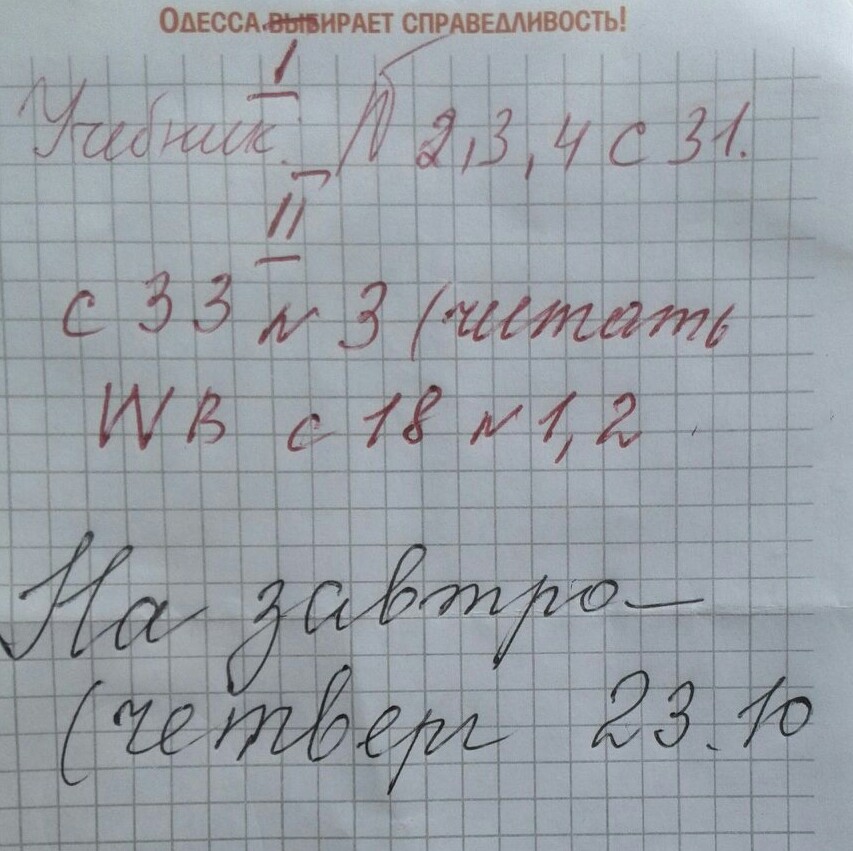 ОДЕССА ВЫБИРАЕТ СПРАВЕДЛИВОСТЬ!
I
Учебник. N 2,3,4 с 31.
II
с 33 N 3 (читать
WB с 18 N 1,2
На завтро —
(четверг 23.10